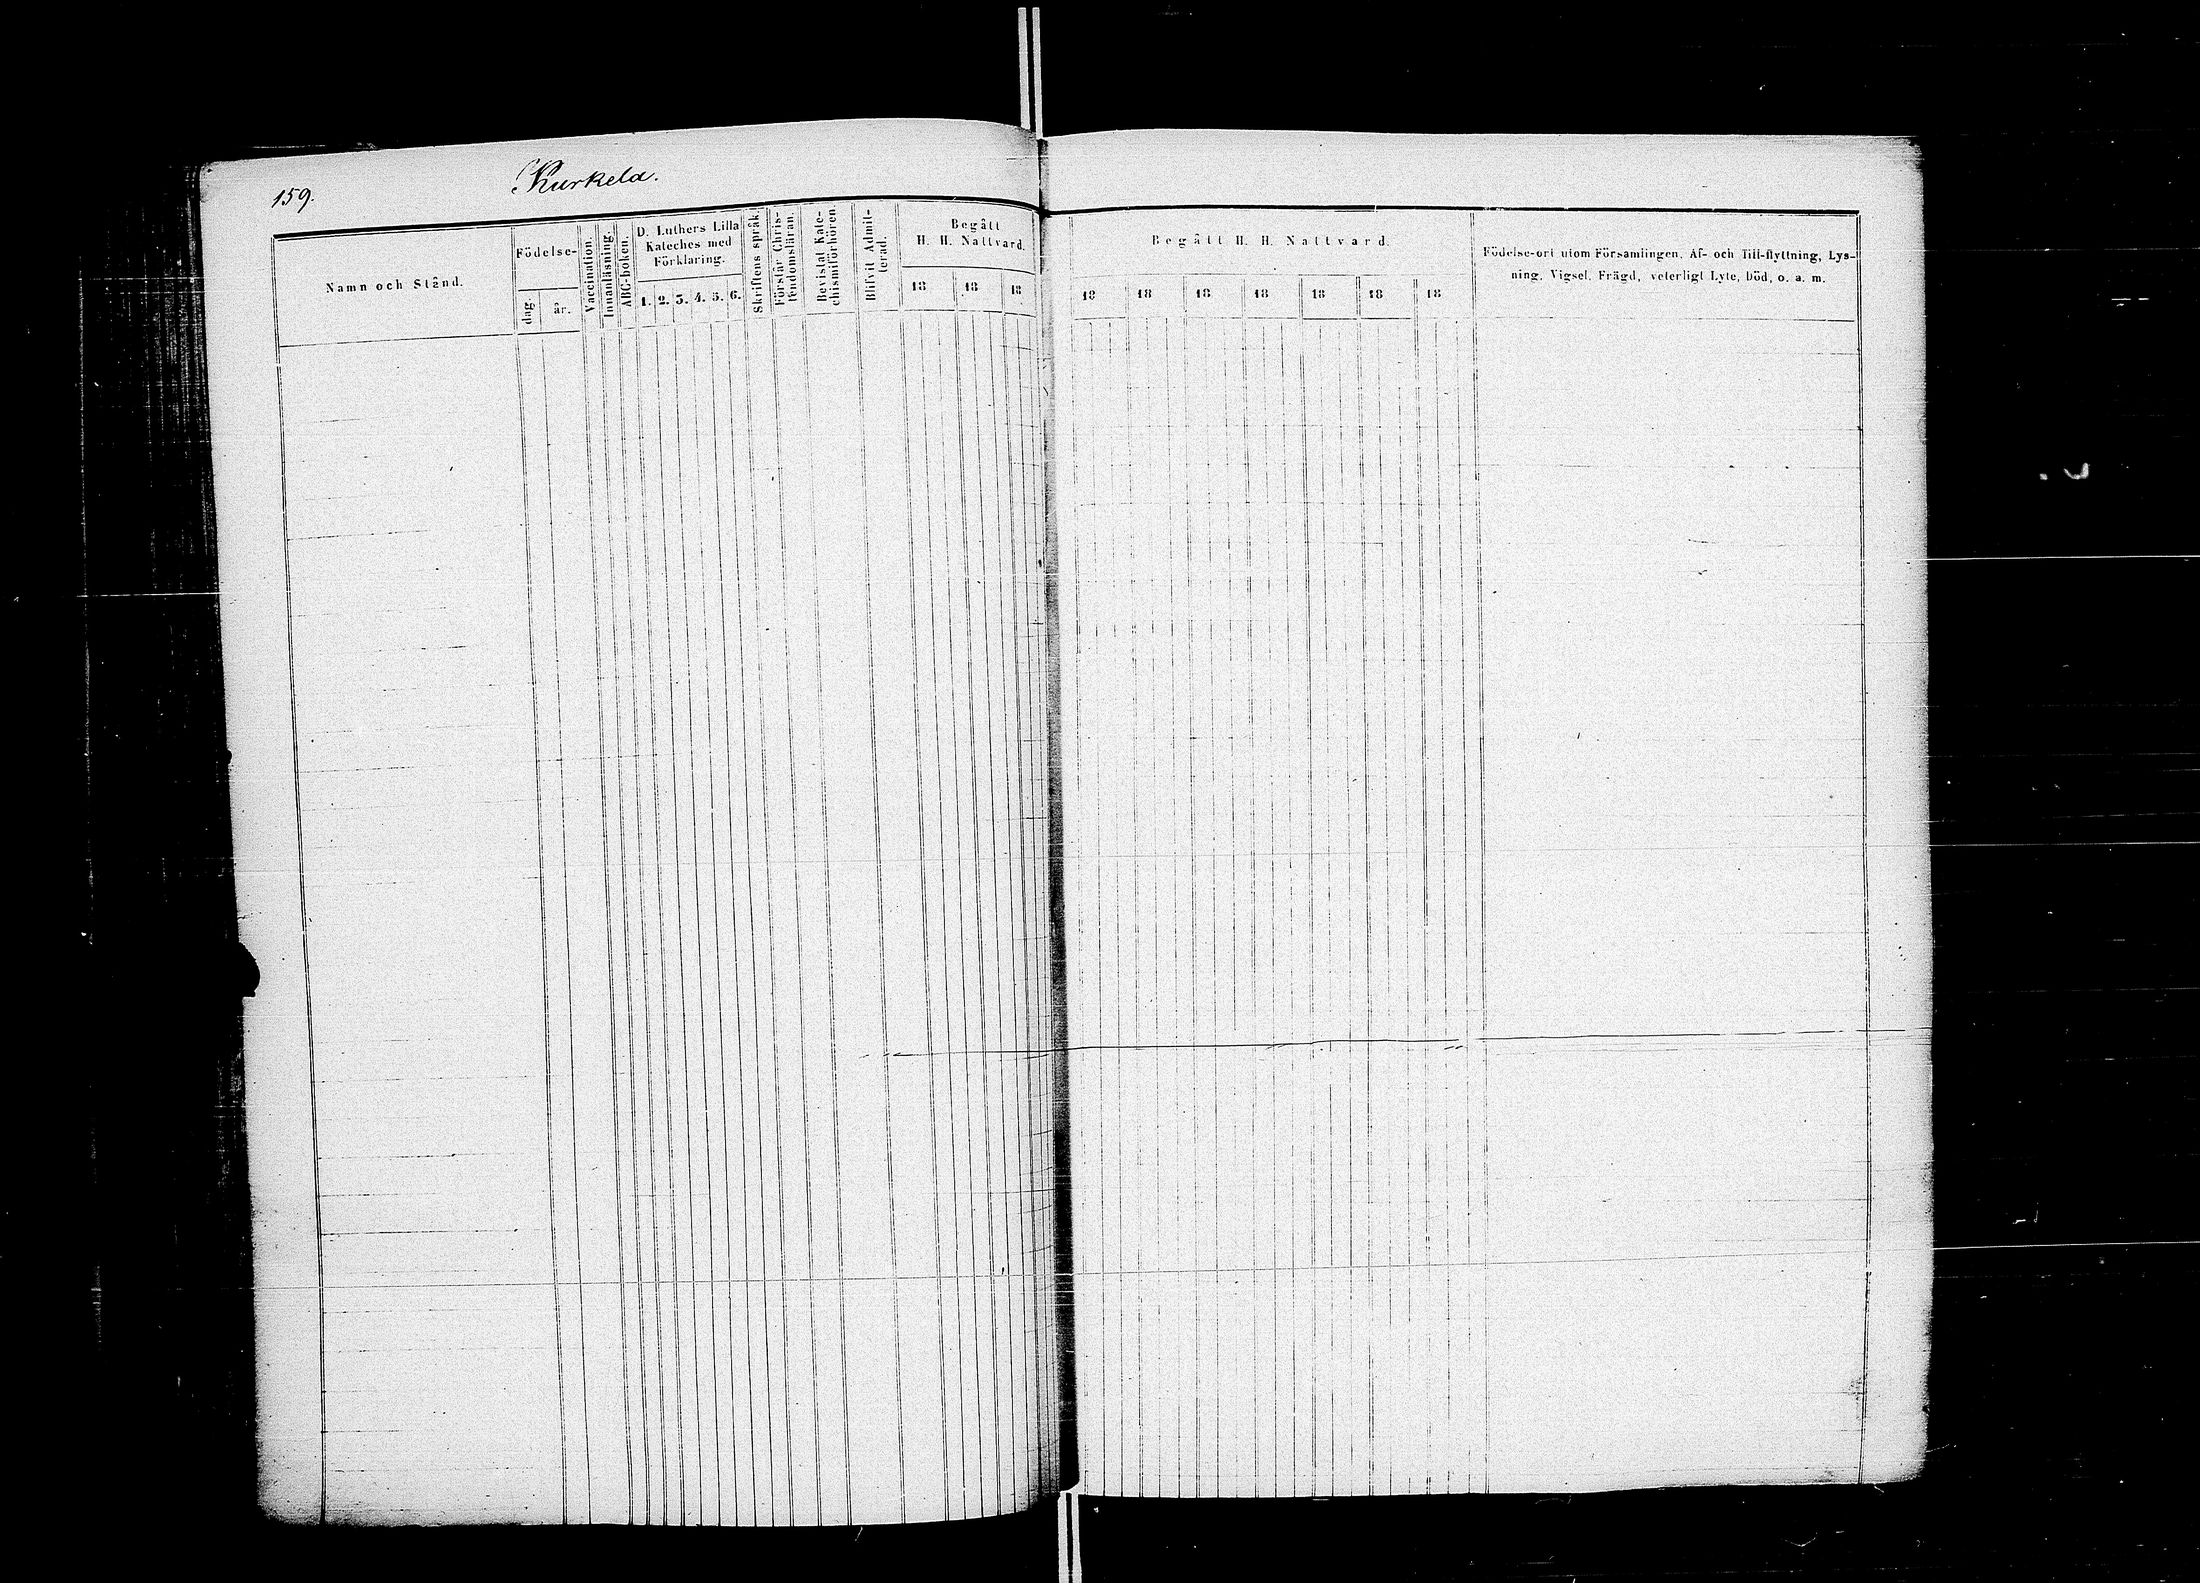 159.
Kurkela.
Namn och Stånd.
Födelse-
dag
år.
Vaccination.
Innanläsning.
ABC-boken.
D. Luthers Lilla
Kateches med
Förklaring.
1. 2. 3. 4. 5. 6.
Skriftens språk.
Förstår Chris-
tendomsläran.
Bevistat Kate-
chismiförhören.
Blifvit Admit-
terad.
Begått
H. H. Nattvard.
18 18 18
Begått H. H. Nattvard.
18 18 18 18 18 18 18
Födelse-ort utom Församlingen, Af- och Till-flyttning, Lys-
ning, Vigsel, Frägd, veterligt Lyte, Död, o. a. m.